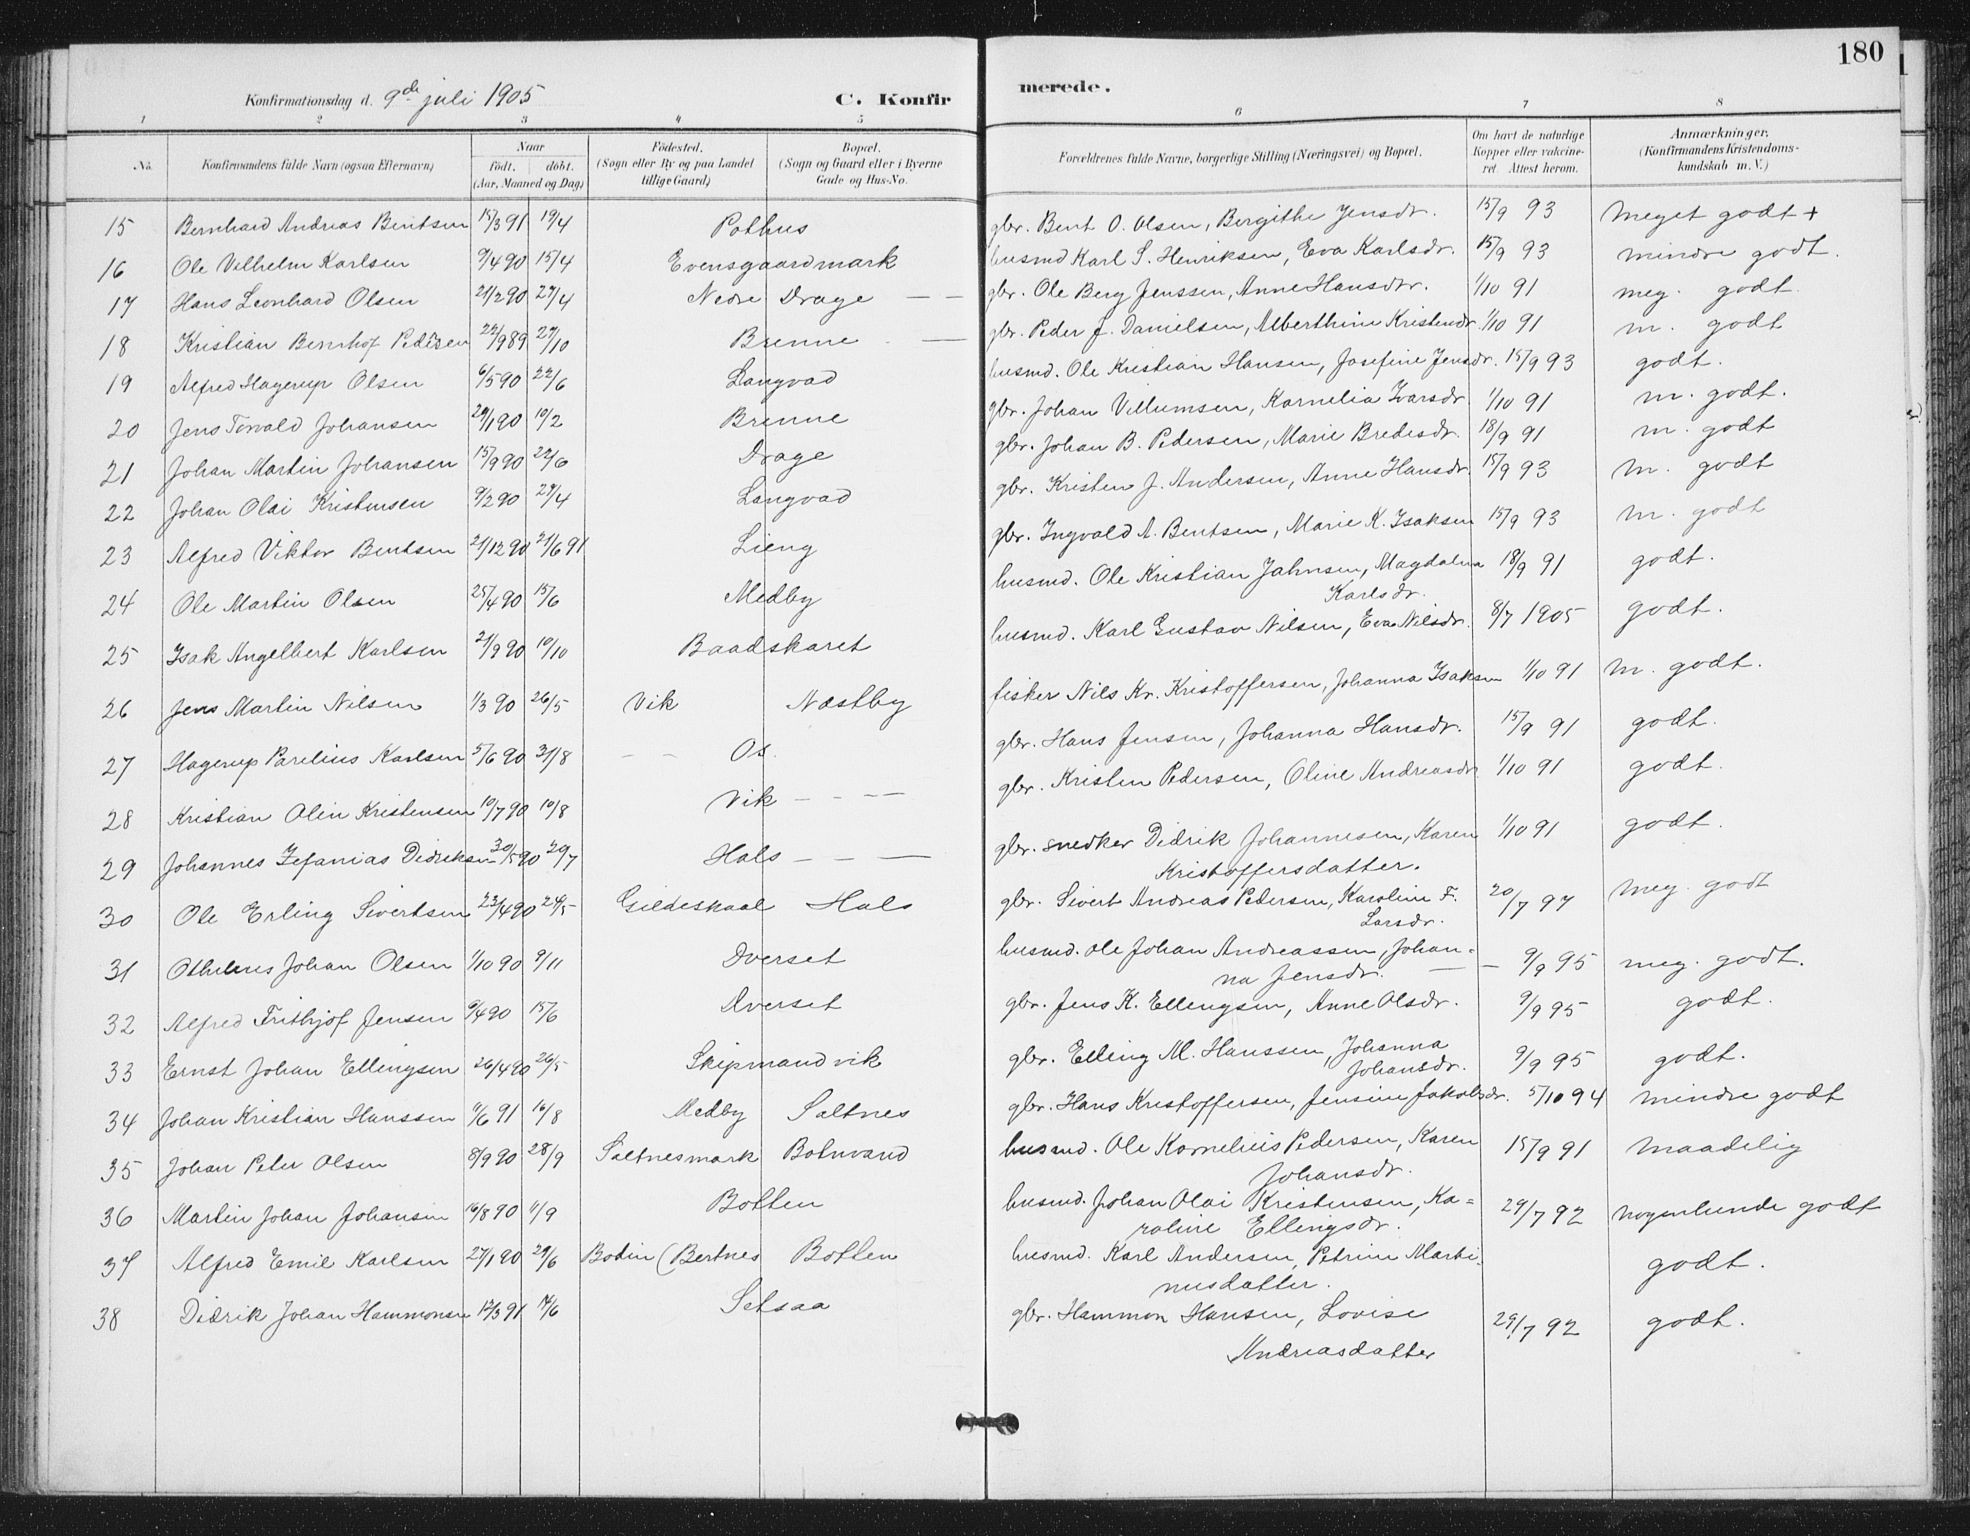 180
Konfirmationsdag d. 9de juli 1905 C. Konfirmerede.
1 2 3 4 5 6 7 8
No. Konfirmandens fulde Navn (ogsaa Efternavn) Naar født. døbt. (Aar, Maaned og Dag) Fødested. (Sogn eller By og paa Landet tillige Gaard) Bopæl. (Sogn og Gaard eller i Byerne Gade og Hus-No. Forældrenes fulde Navne, borgerlige Stilling (Næringsvei) og Bopæl. Om havt de naturlige Kopper eller vakcineret. Attest herom. Anmærkninger. (Konfirmandens Kristendomskundskab m. V.)
15 Bernhard Andreas Bentsen 15/3 91 19/4 Pothus gbr. Bent O. Olsen, Bergithe Jensdr. 15/9 93 meget godt +
16 Ole Vilhelm Karlsen 9/4 90 15/4 Evensgaardmark husmd Karl S. Henriksen, Eva Karlsdr. 15/9 93 mindre godt.
17 Hans Leonhard Olsen 21/2 90 27/4 Nedre Drage — — gbr. Ole Berg Jenssen, Anne Hansdtr. 1/10 91 meg. godt.
18 Kristian Bernhof Pedersen 22/9 89 27/10 Brenne — gbr. Peder J. Danielsen, Alberthine Kristendr. 1/10 91 m. godt
19 Alfred Hagerup Olsen 6/5 90 22/6 Langvad husmd. Ole Kristian Hansen, Josefine Jensdr. 15/9 93 godt.
20 Jens Torvald Johansen 29/1 90 10/2 Brenne gbr. Johan Villumsen, Karnelia Ivarsdr 1/10 91 m. godt.
21 Johan Martin Johansen 15/9 90 22/6 Drage gbr. Johan B. Pedersen, Marie Bredesdr. 18/9 91 m. godt
22 Johan Olai Kristensen 9/2 90 27/4 Langvad gbr. Kristen J. Andersen, Anne Hansdr. 15/9 93 m. godt
23 Alfred Viktor Bentsen 21/12 90 21/6 91 Lieng gbr. Ingvald A. Bentsen, Marie K. Isaksen 15/9 93 m. godt
24 Ole Martin Olsen 25/4 90 15/6 Medby husmd. Ole Kristian Jahnsen, Magdalena 18/9 91 godt.
Karlsdr.
25 Isak Angelbert Karlsen 21/9 90 19/10 Baadskaret husmd. Karl Gustav Nilsen, Eva Nilsdr. 8/7 1905 godt.
26 Jens Martin Nilsen 1/3 90 26/5 Vik Næstby fisker Nils Kr. Kristoffersen, Johanna Isaksen 1/10 91 m. godt.
27 Hagerup Parelius Karlsen 5/6 90 31/8 — — Os. gbr. Hans Jensen, Johanna Hansdr. 15/9 91 godt.
28 Kristian Olin Kristensen 10/7 90 10/8 Vik — — — gbr. Kristen Pedersen, Oline Andreasdr 1/10 91 godt.
29 Johannes Zefanias Didriksen 30/5 90 20/7 Hals — — — gbr. snedker Didrik Johannesen, Karen 1/10 91 godt.
Kristoffersdatter.
30 Ole Erling Sivertsen 23/4 90 24/5 Gildeskaal Hals gbr. Sivert Andreas Pedersen, Karoline F. 20/7 97 meg. godt
Larsdr.
31 Othelius Johan Olsen 1/10 90 9/11 Dverset husmd. Ole Johan Andreassen, Johan-
na Jensdr. — — 9/9 95 meg. godt.
32 Alfred Frithjof Jensen 9/4 90 15/6 Dverset gbr. Jens K. Ellingsen, Anne Olsdr. 9/9 95 godt.
33 Ernst Johan Ellingsen 26/4 90 26/5 Skipmandvik gbr. Elling M. Hanssen, Johanna 9/9 95 godt.
Johansdr.
34 Johan Kristian Hanssen 9/6 91 16/8 Medby Saltnes gbr. Hans Kristoffersen, Jensine Jakobsdr. 5/10 94 mindre godt
35 Johan Peter Olsen 8/9 90 28/9 Saltnesmark Botnvand husmd. Ole Kornelius Pedersen, Karen 15/9 91 maadelig
Johansdr.
36 Martin Johan Johansen 16/8 90 11/9 Botten husmd. Johan Olai Kristensen, Ka-
roline Ellingsdr. 29/7 92 nogenlunde godt
37 Alfred Emil Karlsen 27/1 90 29/6 Bodin (Bertnes Botten husmd. Karl Andersen, Petrine Marti-
nusdatter. godt.
38 Didrik Johan Hammonsen 12/3 91 7/6 Setsaa gbr. Hammon Hansen, Lovise 29/7 92 godt.
Andreasdatter